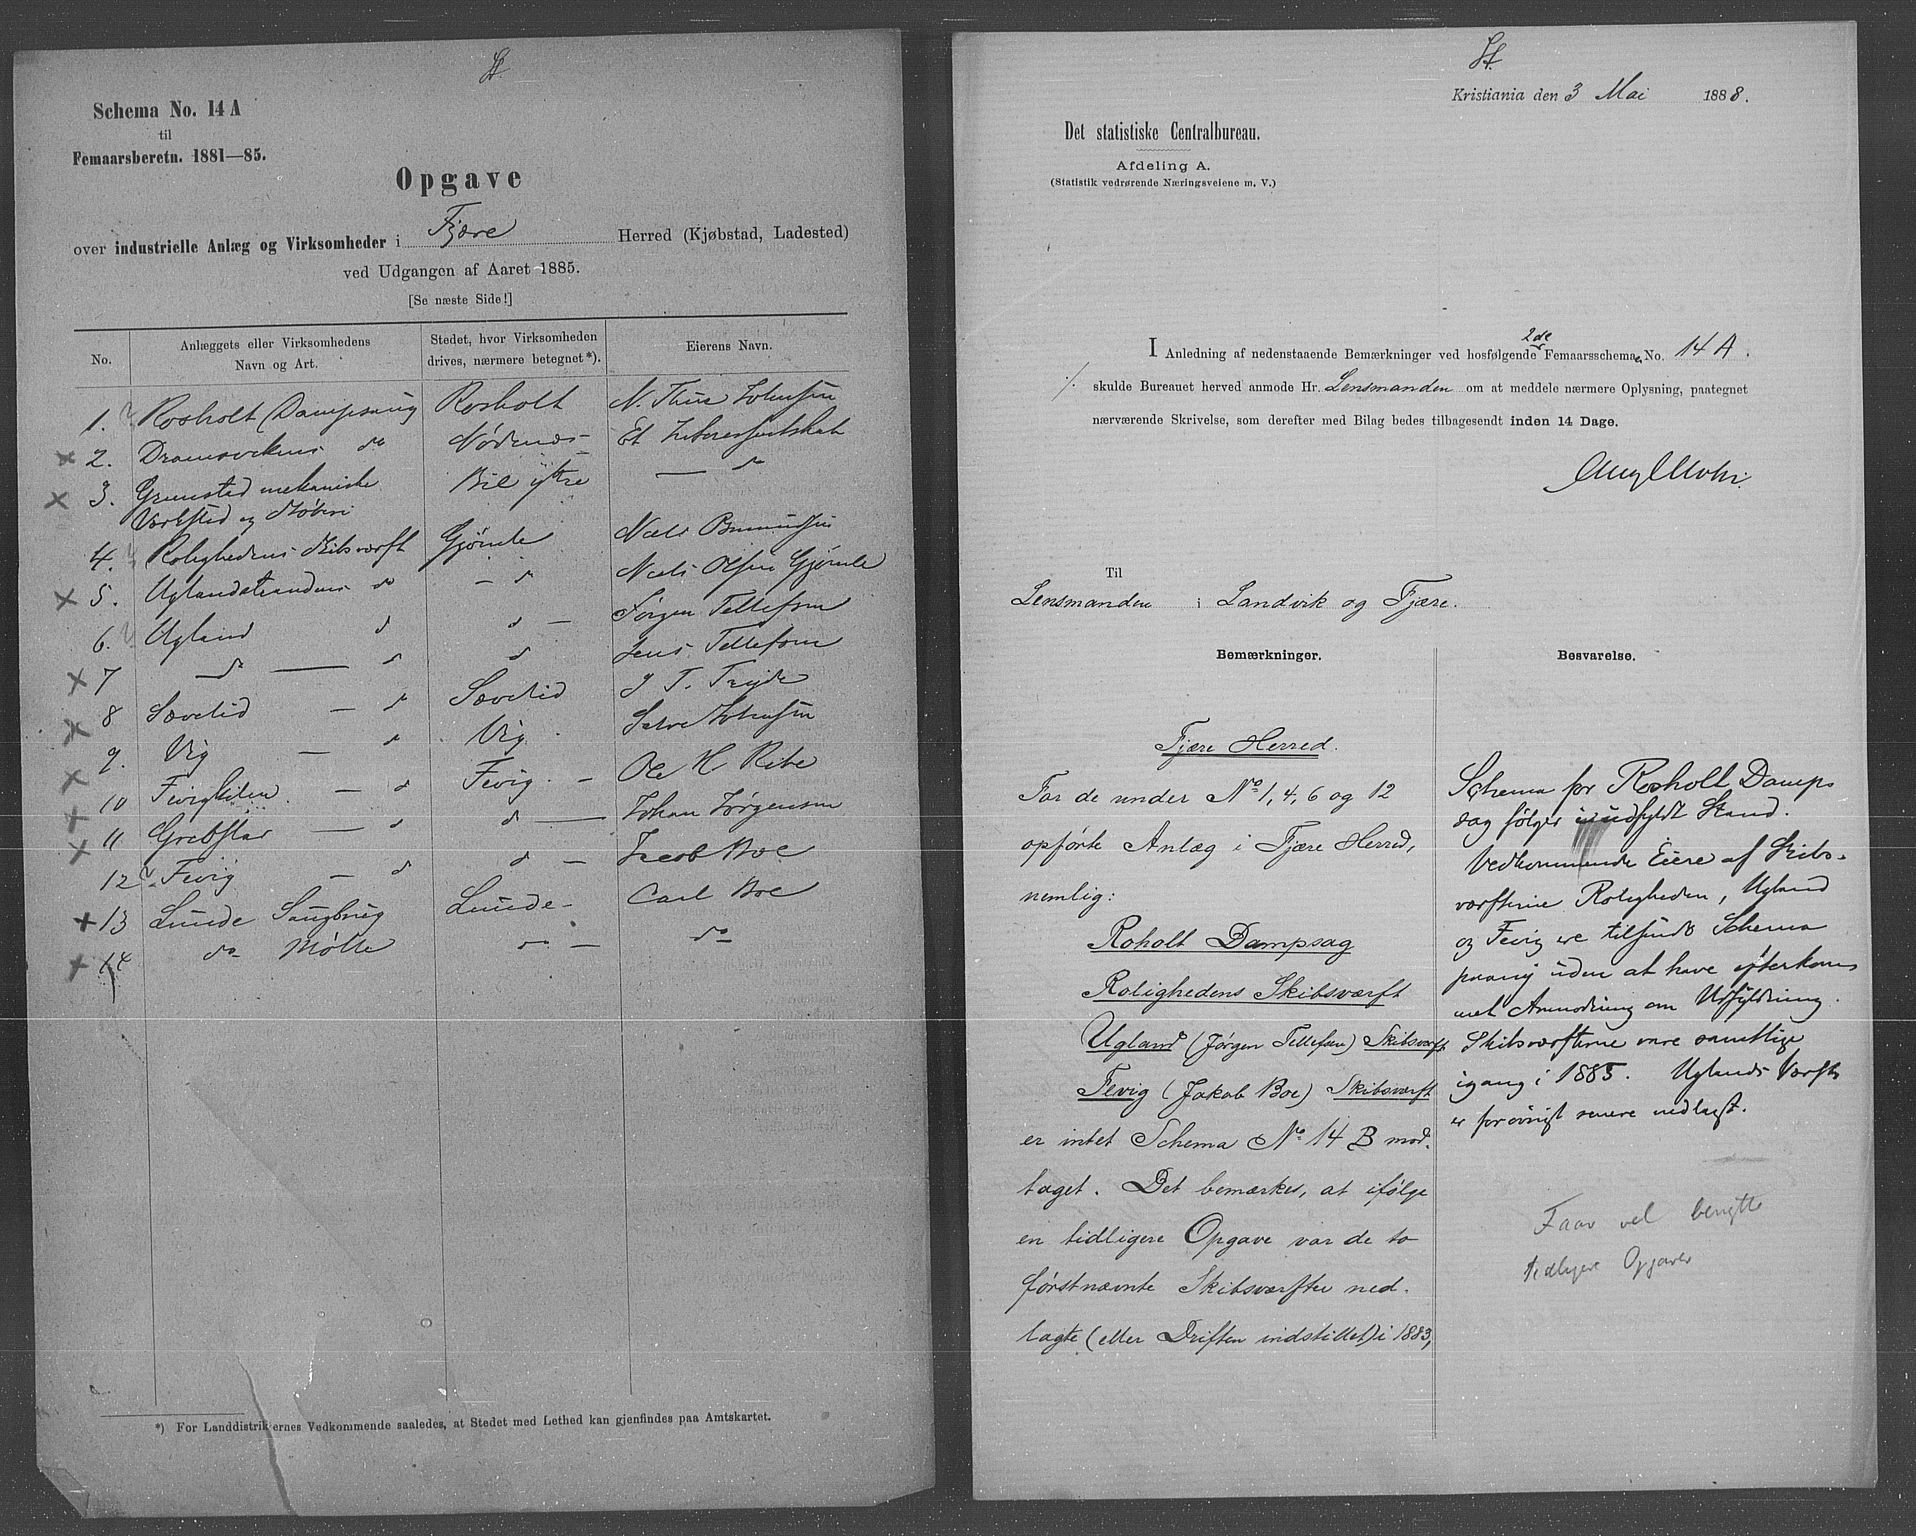 St.
Schema No. 14 A
til
Femaarsberetn. 1881—85.
Opgave
over industrielle Anlæg og Virksomheder i Fjære Herred (Kjøbstad, Ladested)
ved Udgangen af Aaret 1885.
[Se næste Side!]
No. Anlæggets eller Virksomhedens Navn og Art. Stedet, hvor Virksomheden drives, nærmere betegnet*). Eierens Navn.
1. Rosholt Dampsaug Rosholt N. Thue Johnsen
× 2. Dromsvikens do Nødenæs Et Interesentskab
× 3. Grimstad mekaniske Bie ytre — do
Værksted og Støberi
4. Rolighedens Skibsværft Gjømle Niels
× 5. Uglandstrandens do — do Niels Olsen Gjømle
6. Ugland do do — Jørgen Tellefsen
× 7 do — do do Jens Tellefsen
× 8 Sævelid — do Sævelid J T.
× 9. Vig — do Vig Salve Johnsen
× 10 Fevigkilen — do Fevig — Ole H Ribe
× 11 Grebstar — do do — Johan Jørgensen
12 Fevig — do do — Jacob Boe
× 13 Lunde Saugbrug Lunde Carl Boe
× 14 do Mølle do — do
*) For Landdistrikternes Vedkommende saaledes, at Stedet med Lethed kan gjenfindes paa Amtskartet.
St.
Kristiania den 3 Mai 1888.
Det statistiske Centralbureau.
Afdeling A.
(Statistik vedrørende Næringsveiene m. V.)
2de
I Anledning af nedenstaaende Bemærkninger ved hosfølgende Femaarsschema, No. 14 A.
./. skulde Bureauet herved anmode Hr. Lensmanden om at meddele nærmere Oplysning, paategnet
nærværende Skrivelse, som derefter med Bilag bedes tilbagesendt inden 14 Dage.
Til
Lensmanden i Landvik og Fjære.
Bemærkninger. Besvarelse.
Fjære Herred.
For de under No 1, 4, 6 og 12
opførte Anlæg i Fjære Herred,
nemlig:
Roholt Dampsag
Rolighedens Skibsværft
Ugland (Jørgen Tellefsen) Skibsværft
Fevig (Jakob Boe) Skibsværft
er intet Schema No. 14 B mod-
taget. Det bemærkes, at ifølge
en tidligere Opgave var de to
førstnævnte Skibsværfter ned-
lagte (eller Driften indstillet) i 1883,
Schema for Rosholt Damps
sag følger i udfyldt Stand.
Vedkommende Eiere af Skibs-
værfterne Roligheden, Ugland
og Fevig ere tilsendt Schema
paany uden at have efterkom
met Anmodning om Udfyldning.
Skibsværfterne vare samtlige
igang i 1885. Uglands Værft
er forøvrigt senere nedlagt.
Faar vel benytte
tidligere Opgaver